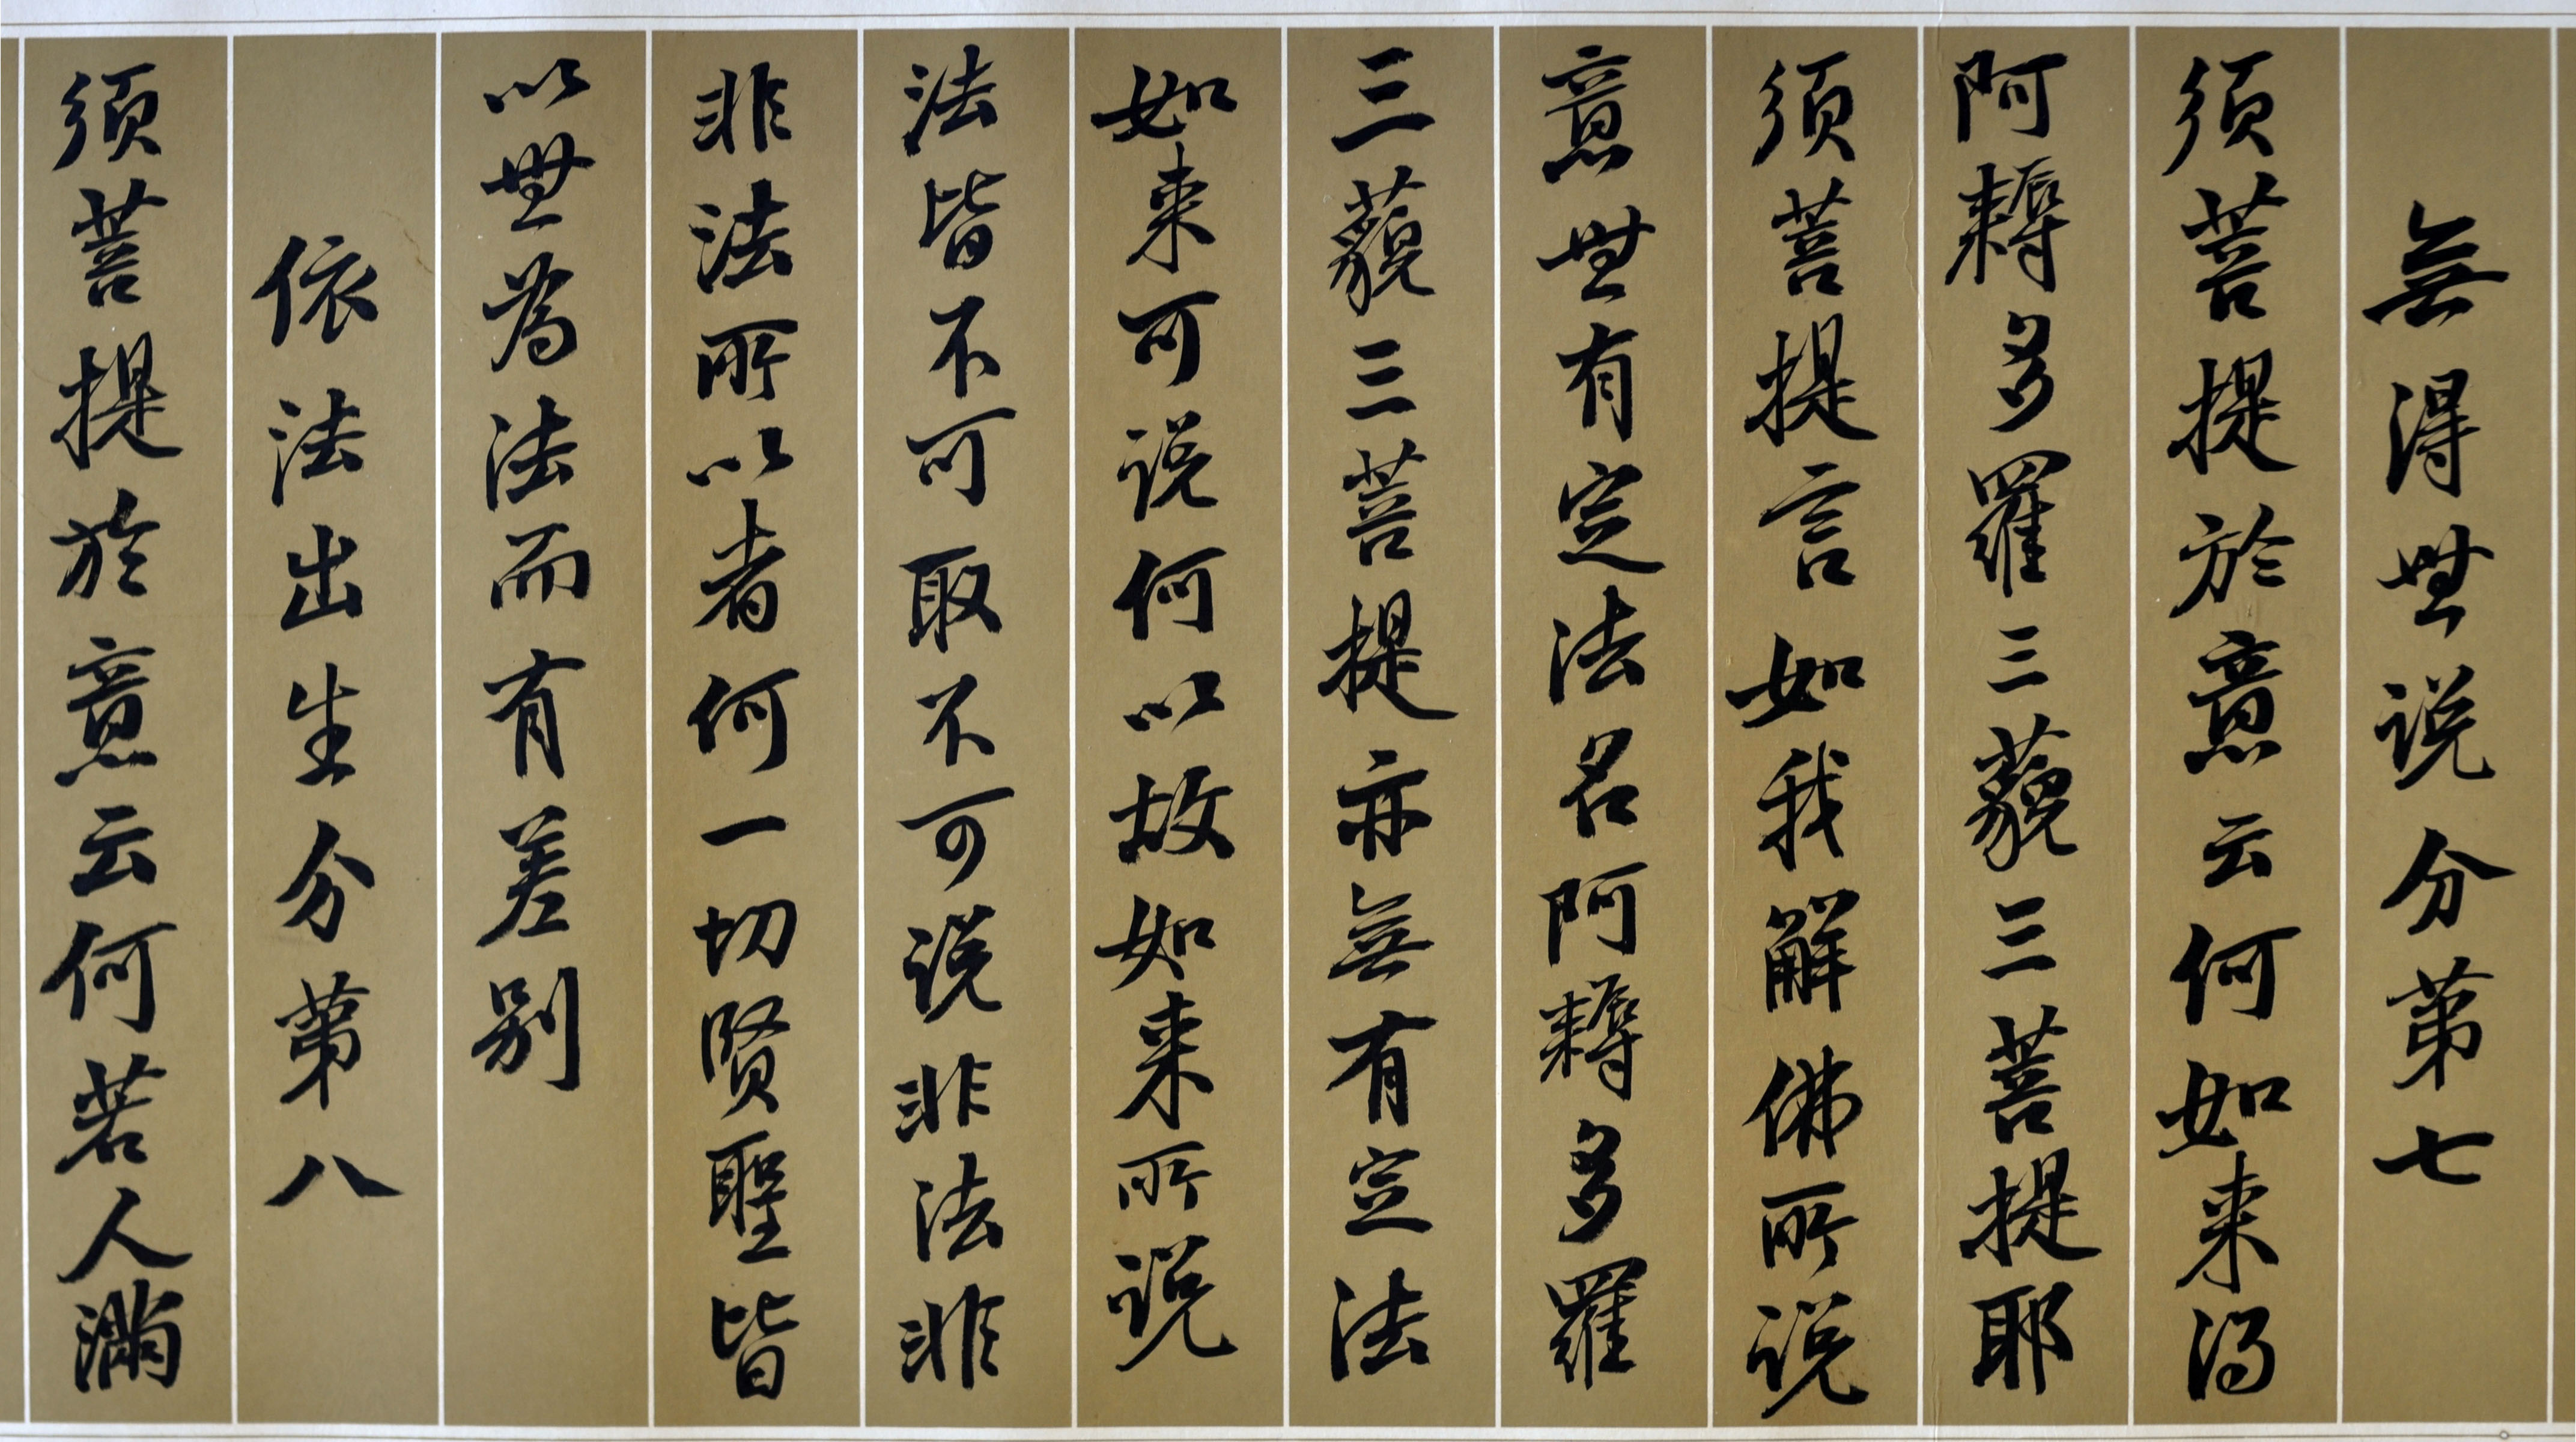 無得無说分第七
须菩提於意云何如来得
阿耨多羅三藐三菩提耶
须菩提言如我解佛所说
意無有定法名阿耨多羅
三藐三菩提亦無有定法
如来可说何以故如来所说
法皆不可取不可说非法非
非法所以者何一切贤聖皆
以無為法而有差别
依法出生分第八
须菩提於意云何若人滿